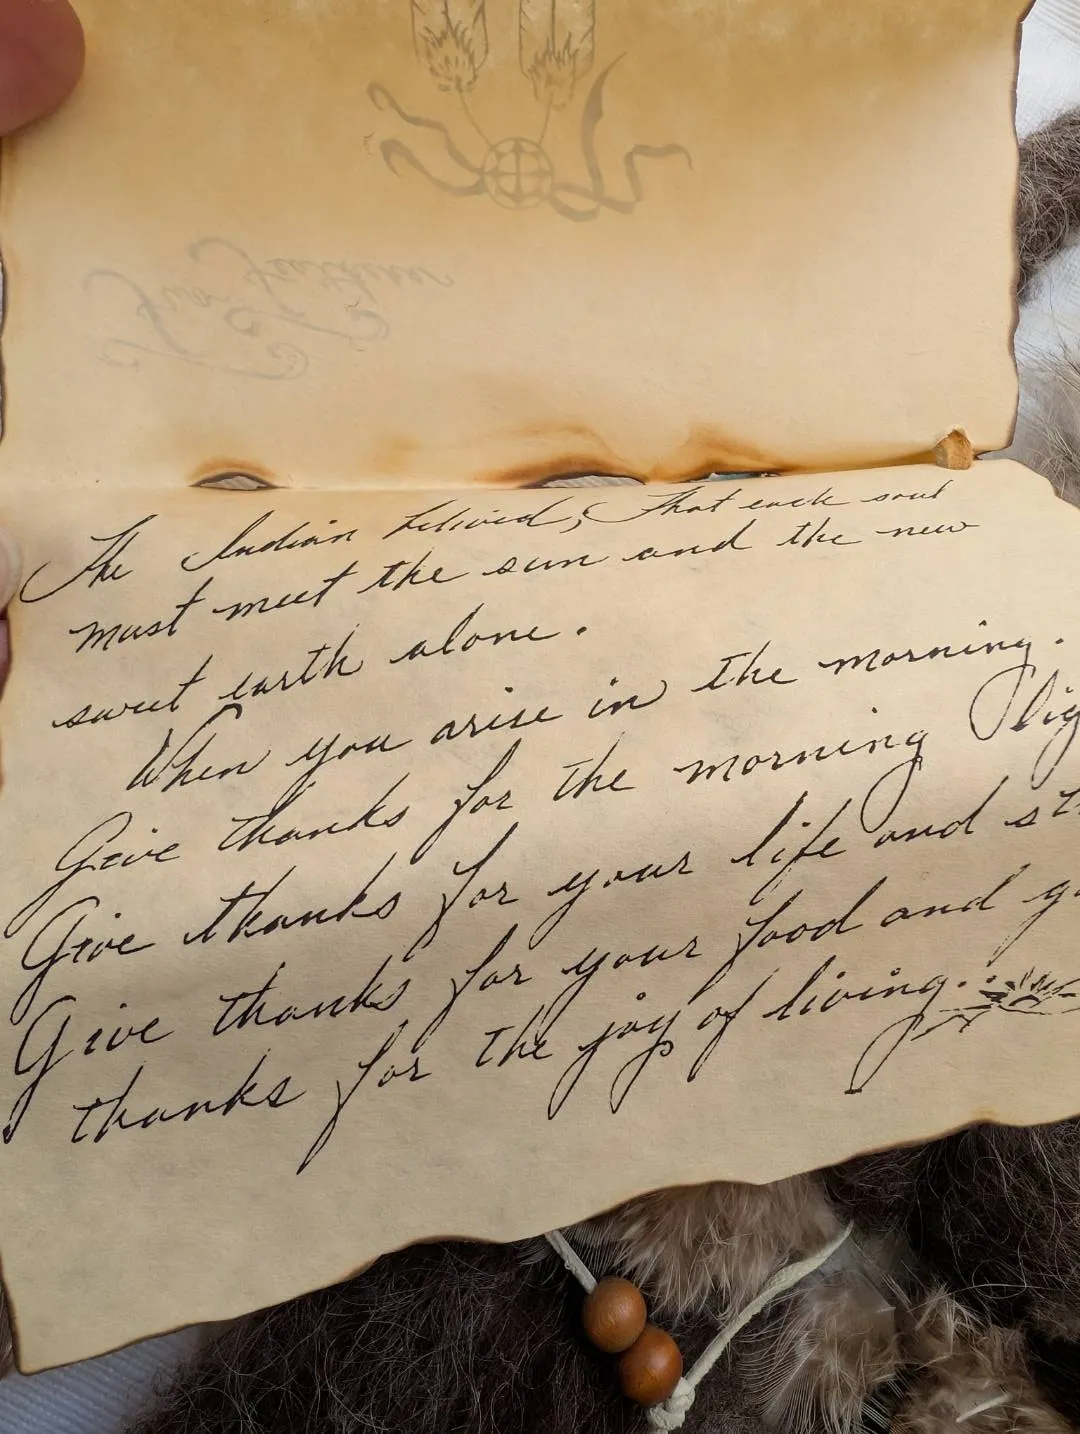 The Indian believed, That each soul
must meet the sun and the new
sweet earth alone.
When you arise in the morning.
Give thanks for the morning lig
Give thanks for your life and st
Give thanks for your food and g
thanks for the joy of living...